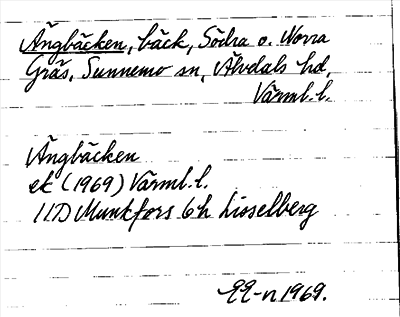 Ängbäcken, bäck, Södra o. Norra
Gräs, Sunnemo sn, Älvdals hd,
Värml. l.
Ängbäcken
ek (1969) Värml. l.
11D Munkfors 6h Lisselberg
1969.